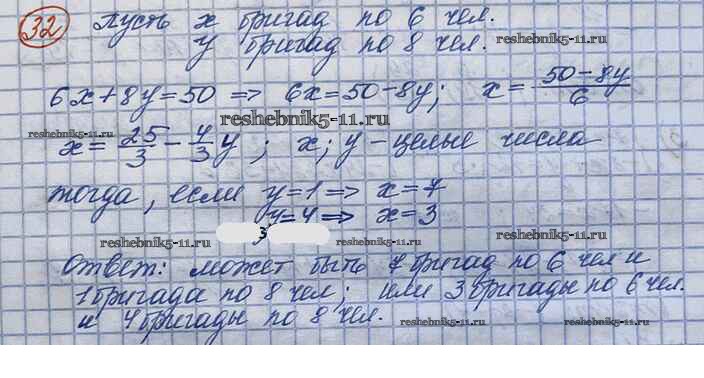 32 Пусть x бригад по 6 чел.
y бригад по 8 чел.
reshebnik5-11.ru
6x+8y=50 => 6x=50-8y; x= (50-8y)/6
reshebnik5-11.ru
reshebnik5-11.ru
x= 25/3 - 4/3 y; x; y - целые числа
reshebnik5-11.ru
тогда, если y=1 => x=7
y=4 => x=3
3
reshebnik5-11.ru reshebnik5-11.ru
Ответ: может быть 7 бригад по 6 чел и
1 бригада по 8 чел; или 3 бригады по 6 чел.
и 4 бригады по 8 чел.
reshebnik5-11.ru